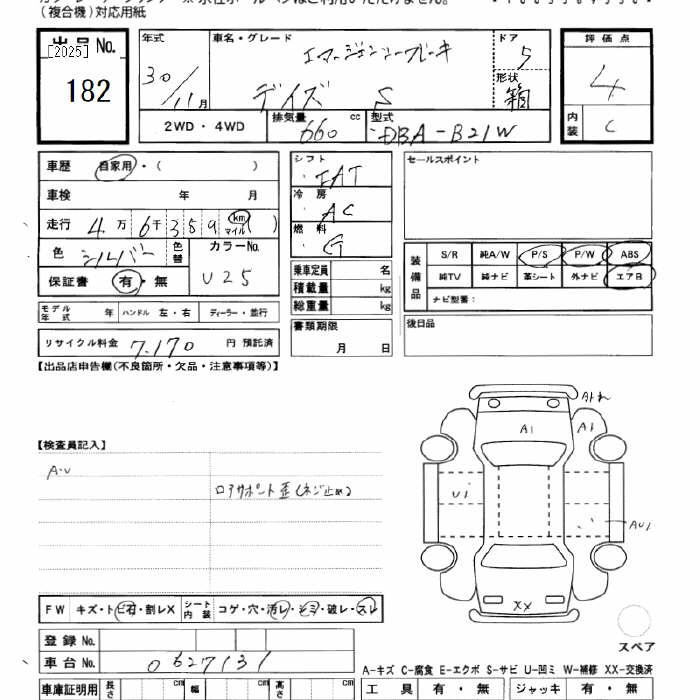 (複合機)対応用紙
出品 No.
[2025]
182
年式
30/11月
車名・グレード
エマージェンシーブレーキ
デイズ S
ドア
5
形状
箱
評価点
4
内装
C
2WD・4WD
排気量 660 cc
型式 DBA-B21W
車歴 自家用・( )
車検 年 月
走行 4万6千359 km マイル ( )
色 シルバー 色替
カラーNo.
U25
保証書 有・無
シフト
IAT
冷房
AC
燃料
G
乗車定員 名
積載量 kg
総重量 kg
書類期限
月 日
セールスポイント
装備品
S/R 純A/W P/S P/W ABS
純TV 純ナビ 革シート 外ナビ エアB
ナビ型番:
後日品
モデル年式 年 ハンドル 左・右 ディーラー・並行
リサイクル料金 7,170 円 預託済
【出品店申告欄(不良箇所・欠品・注意事項等)】
【検査員記入】
A・U
ロアサポート歪(ネジ止め)
A1
A1
U1
AU1
XX
スペア
FW キズ・ト ビ石・割レX シート内装 コゲ・穴・汚レ・シミ・破レ・スレ
登録 No.
車台 No. 0627131
A-キズ C-腐食 E-エクボ S-サビ U-凹ミ W-補修 XX-交換済
車庫証明用 長さ cm 幅 cm 高さ cm
工具 有・無 ジャッキ 有・無